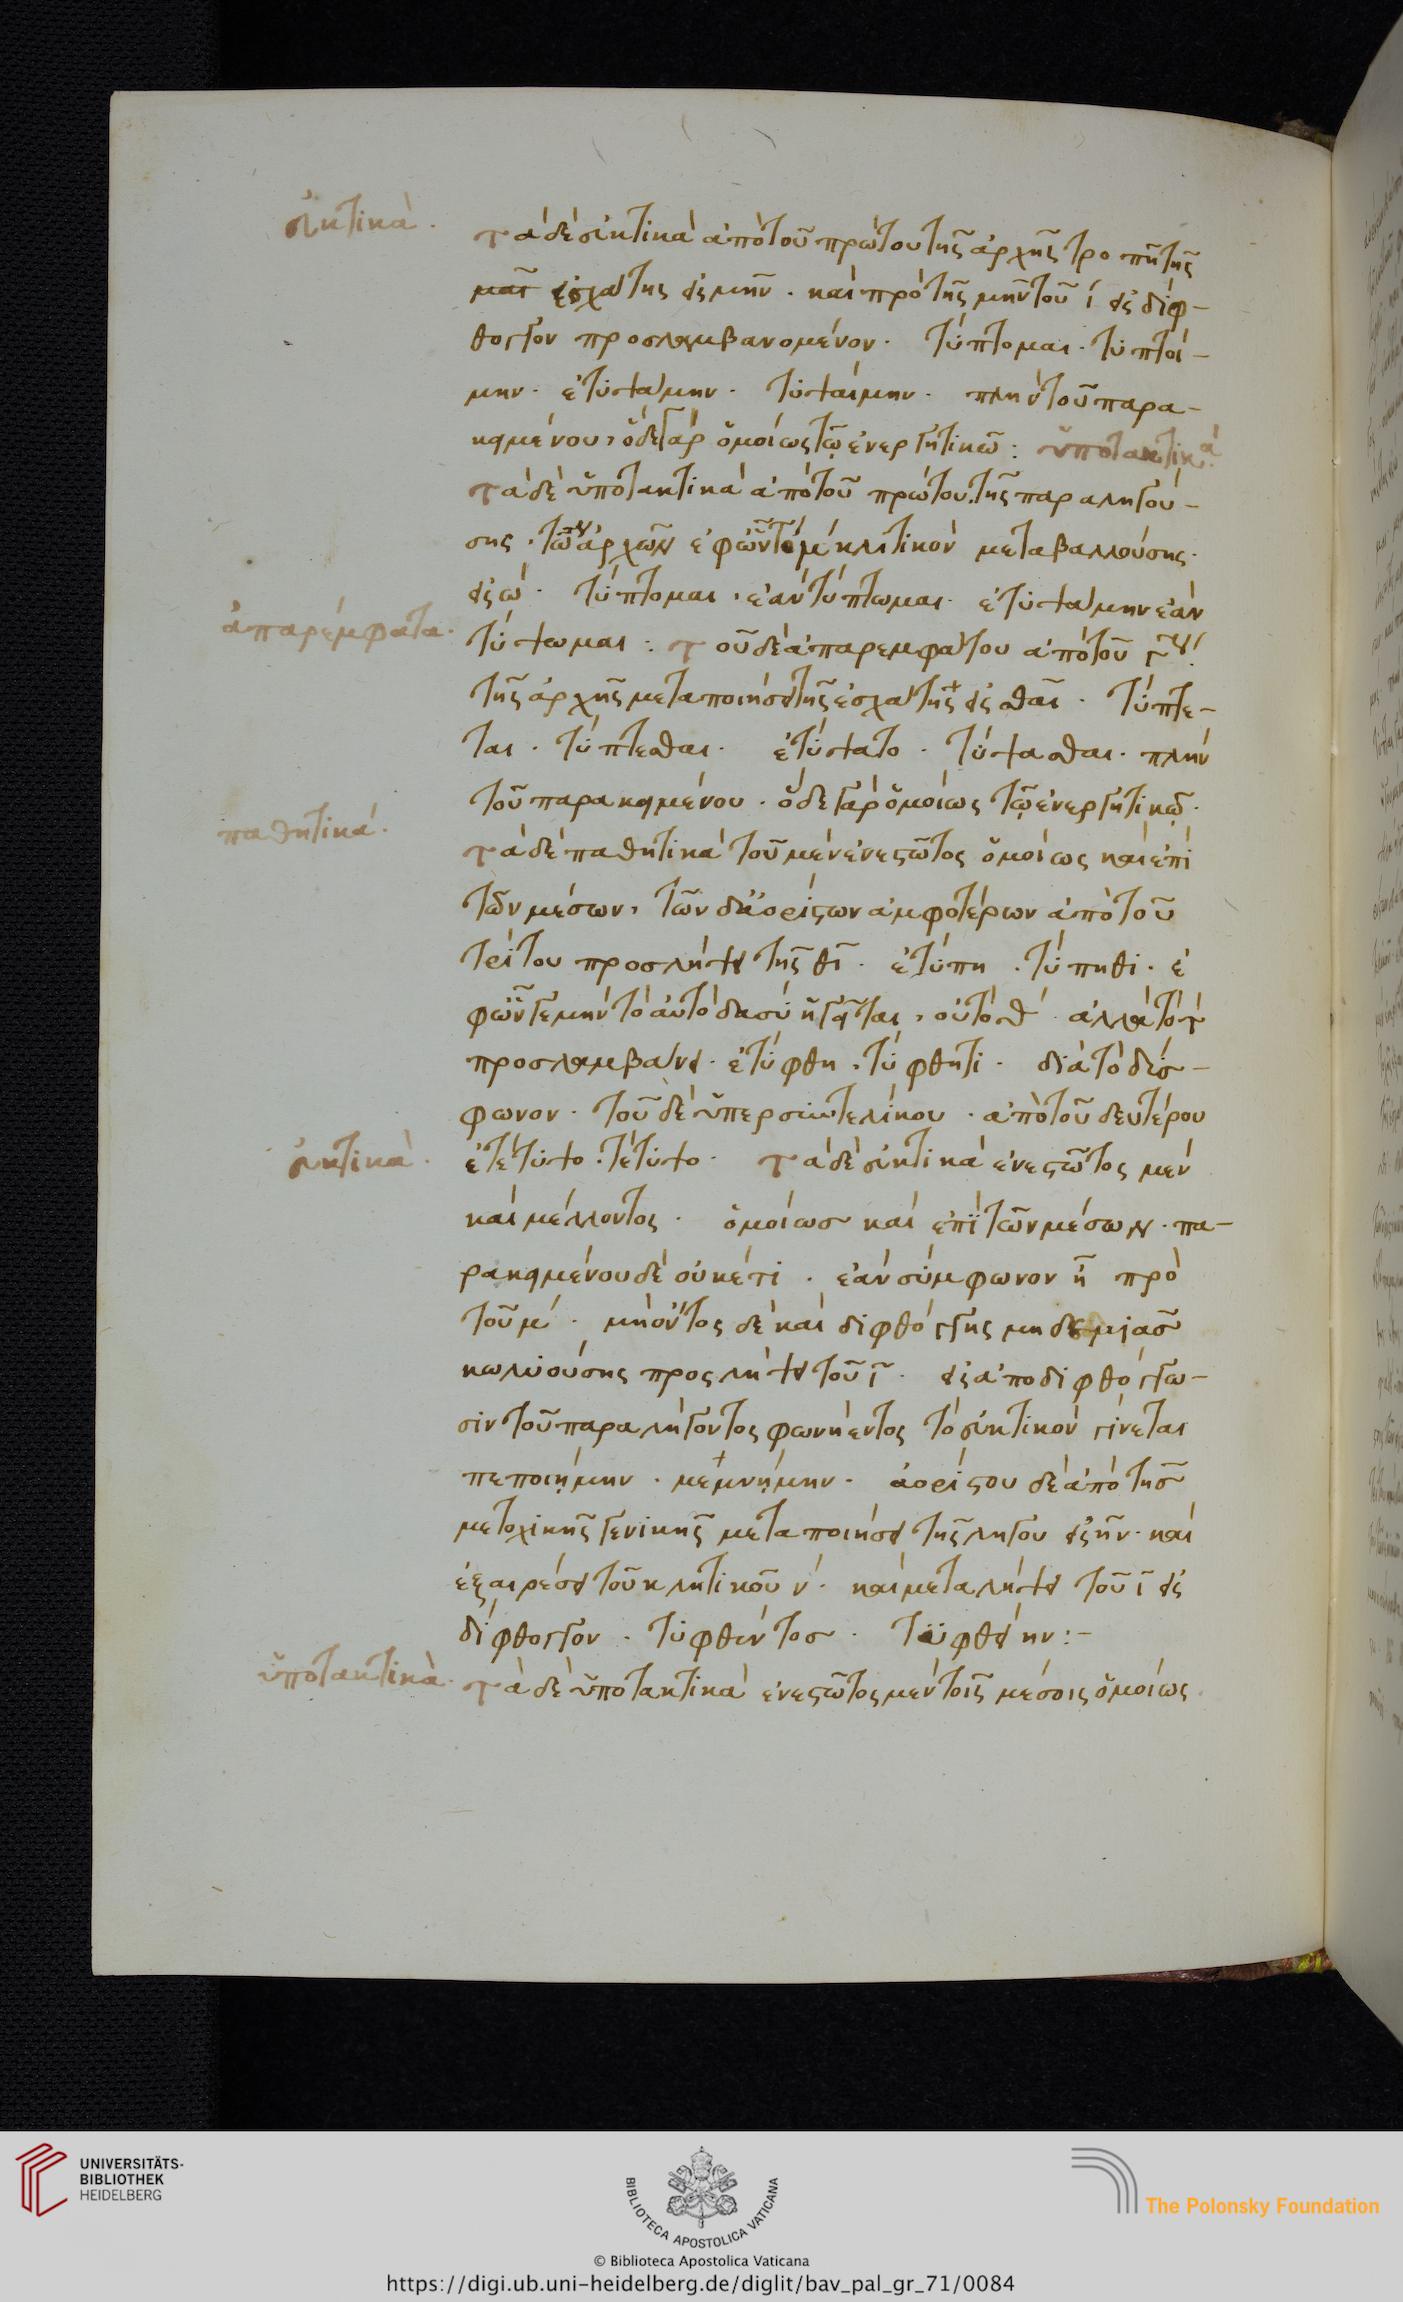 εὐκτικὰ.
τὰ δὲ εὐκτικὰ ἀπὸ τοῦ πρώτου τῆς ἀρχῆς τροπῇ τῆς
μαῖ ἐσχάτης εἰς μην. καὶ πρὸ τῆς μην τοῦ ι εἰς δίφ-
θογγον προσλαμβανομένου. τύπτομαι. τυπτοί-
μην. ἐτυψάμην. τυψαίμην. πλὴν τοῦ παρα-
κειμένου, ὅδε γὰρ ὁμοίως τῷ ἐνεργητικῶ: ὑποτακτικά.
τὰ δὲ ὑποτακτικὰ ἀπὸ τοῦ πρώτου τῆς παραληγού-
σης. τῶν ἀρχῶν ἐφ' ὧν τὸ μ κλιτικὸν μεταβαλλούσης.
εἰς ω. τύπτομαι, ἐὰν τύπτωμαι. ἐτυψάμην ἐὰν
ἀπαρέμφατα.
τύψωμαι: τοῦ δὲ ἀπαρεμφάτου ἀπὸ τοῦ γου.
τῆς ἀρχῆς μεταποιήσει τῆς ἐσχάτης εἰς σθαι. τύπτε-
ται. τύπτεσθαι. ἐτύψατο. τύψασθαι. πλὴν
τοῦ παρακειμένου. ὅδε γὰρ ὁμοίως τῷ ἐνεργητικῷ.
παθητικά.
τὰ δὲ παθητικὰ τοῦ μὲν ἐνεστῶτος ὁμοίως καὶ ἐπὶ
τῶν μέσων, τῶν δὲ ἀορίστων ἀμφοτέρων ἀπὸ τοῦ
τρίτου προσλήψει τῆς θι. ἐτύπη. τύπηθι. ἐ
φ' ὧν γε μὴν τὸ αὐτὸ δασὺ ἡγεῖται, οὐ τὸ θ ἀλλὰ τὸ τ
προσλαμβάνει. ἐτύφθη. τύφθητι. διὰ τὸ δύσ-
φωνον. τοῦ δὲ ὑπερσυντελίκου. ἀπὸ τοῦ δευτέρου
εὐκτικὰ.
ἐτέτυψο. τέτυψο. τὰ δὲ εὐκτικὰ ἐνεστῶτος μὲν
καὶ μέλλοντος. ὁμοίωσ καὶ ἐπὶ τῶν μέσων. πα-
ρακειμένου δὲ οὐκέτι. ἐὰν σύμφωνον ῇ πρὸ
τοῦ μ. μὴ ὄντος δὲ καὶ διφθόγγης μηδεμιᾶσ
κωλυούσης προςλήψει τοῦ ι. εἰς ἀποδιφθόγγω-
σιν τοῦ παραλήγοντος φωνήεντος τὸ εὐκτικὸν γίνεται
πεποιῄμην. μεμνῄμην. ἀορίστου δὲ ἀπὸ τῆσ
μετοχικῆς γενικῆς μεταποιήσει τῆς ληγου εἰς ην. καὶ
ἐξαιρέσει τοῦ κλητικοῦ ν. καὶ μεταλήψει τοῦ ι εἰς
δίφθογγον. τυφθέντοσ. τυφθείην:-
ὑποτακτικὰ.
τὰ δὲ ὑποτακτικὰ ἐνεστῶτος μὲν τοῖς μέσοις ὁμοίως
UNIVERSITÄTS-
BIBLIOTHEK
HEIDELBERG
BIBLIOTECA APOSTOLICA VATICANA
The Polonsky Foundation
© Biblioteca Apostolica Vaticana
https://digi.ub.uni-heidelberg.de/diglit/bav_pal_gr_71/0084